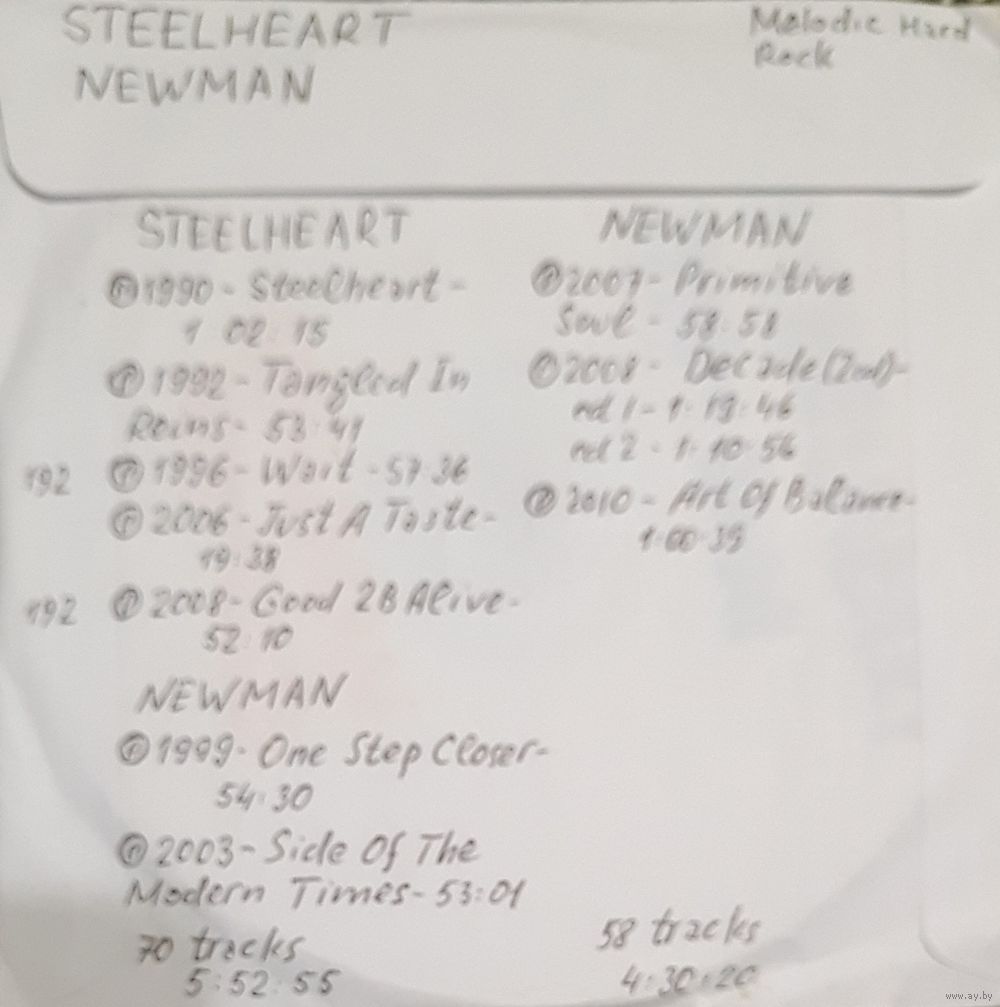 STEELHEART
NEWMAN
Melodic Hard
Rock
STEELHEART
℗1990 - Steelheart -
1 02:15
℗1992 - Tangled In
Reins - 53:41
192 ℗1996 - Wait - 57:36
℗2006 - Just A Taste -
19:38
192 ℗2008 - Good 2B Alive -
52:10
NEWMAN
℗1999 - One Step Closer -
54:30
℗2003 - Side Of The
Modern Times - 53:01
70 tracks
5:52:55
NEWMAN
℗2007 - Primitive
Soul - 58:58
℗2008 - Decade (2cd) -
cd 1 - 1:19:46
cd 2 - 1:10:56
℗2010 - Art Of Balance -
1:00:39
58 tracks
4:30:20
www.ay.by